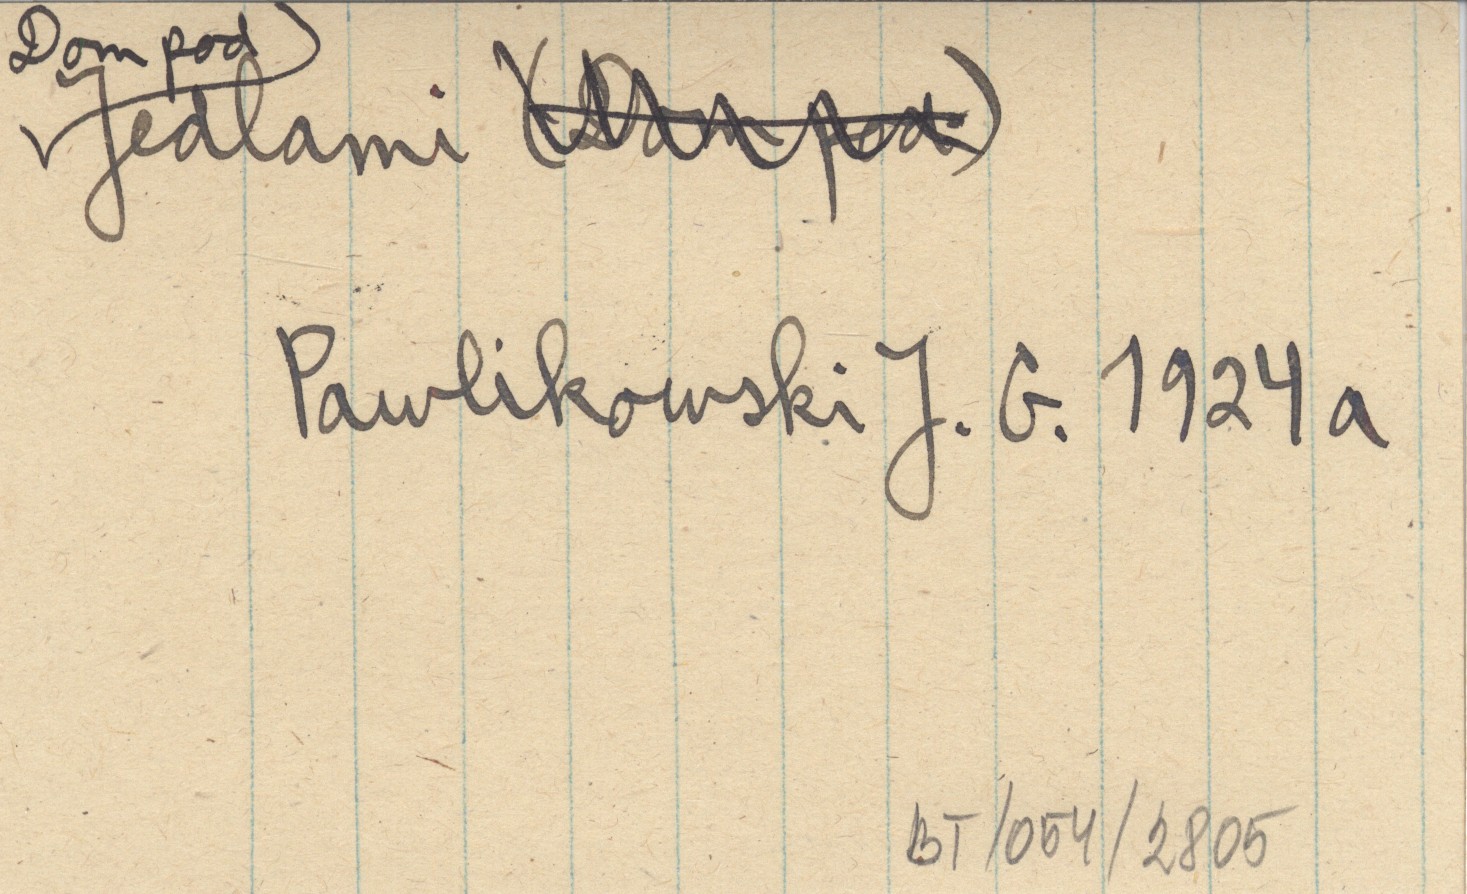 Dom pod
Jedlami (Dom pod)
Pawlikowski J. G. 1924a
BT/054/2805